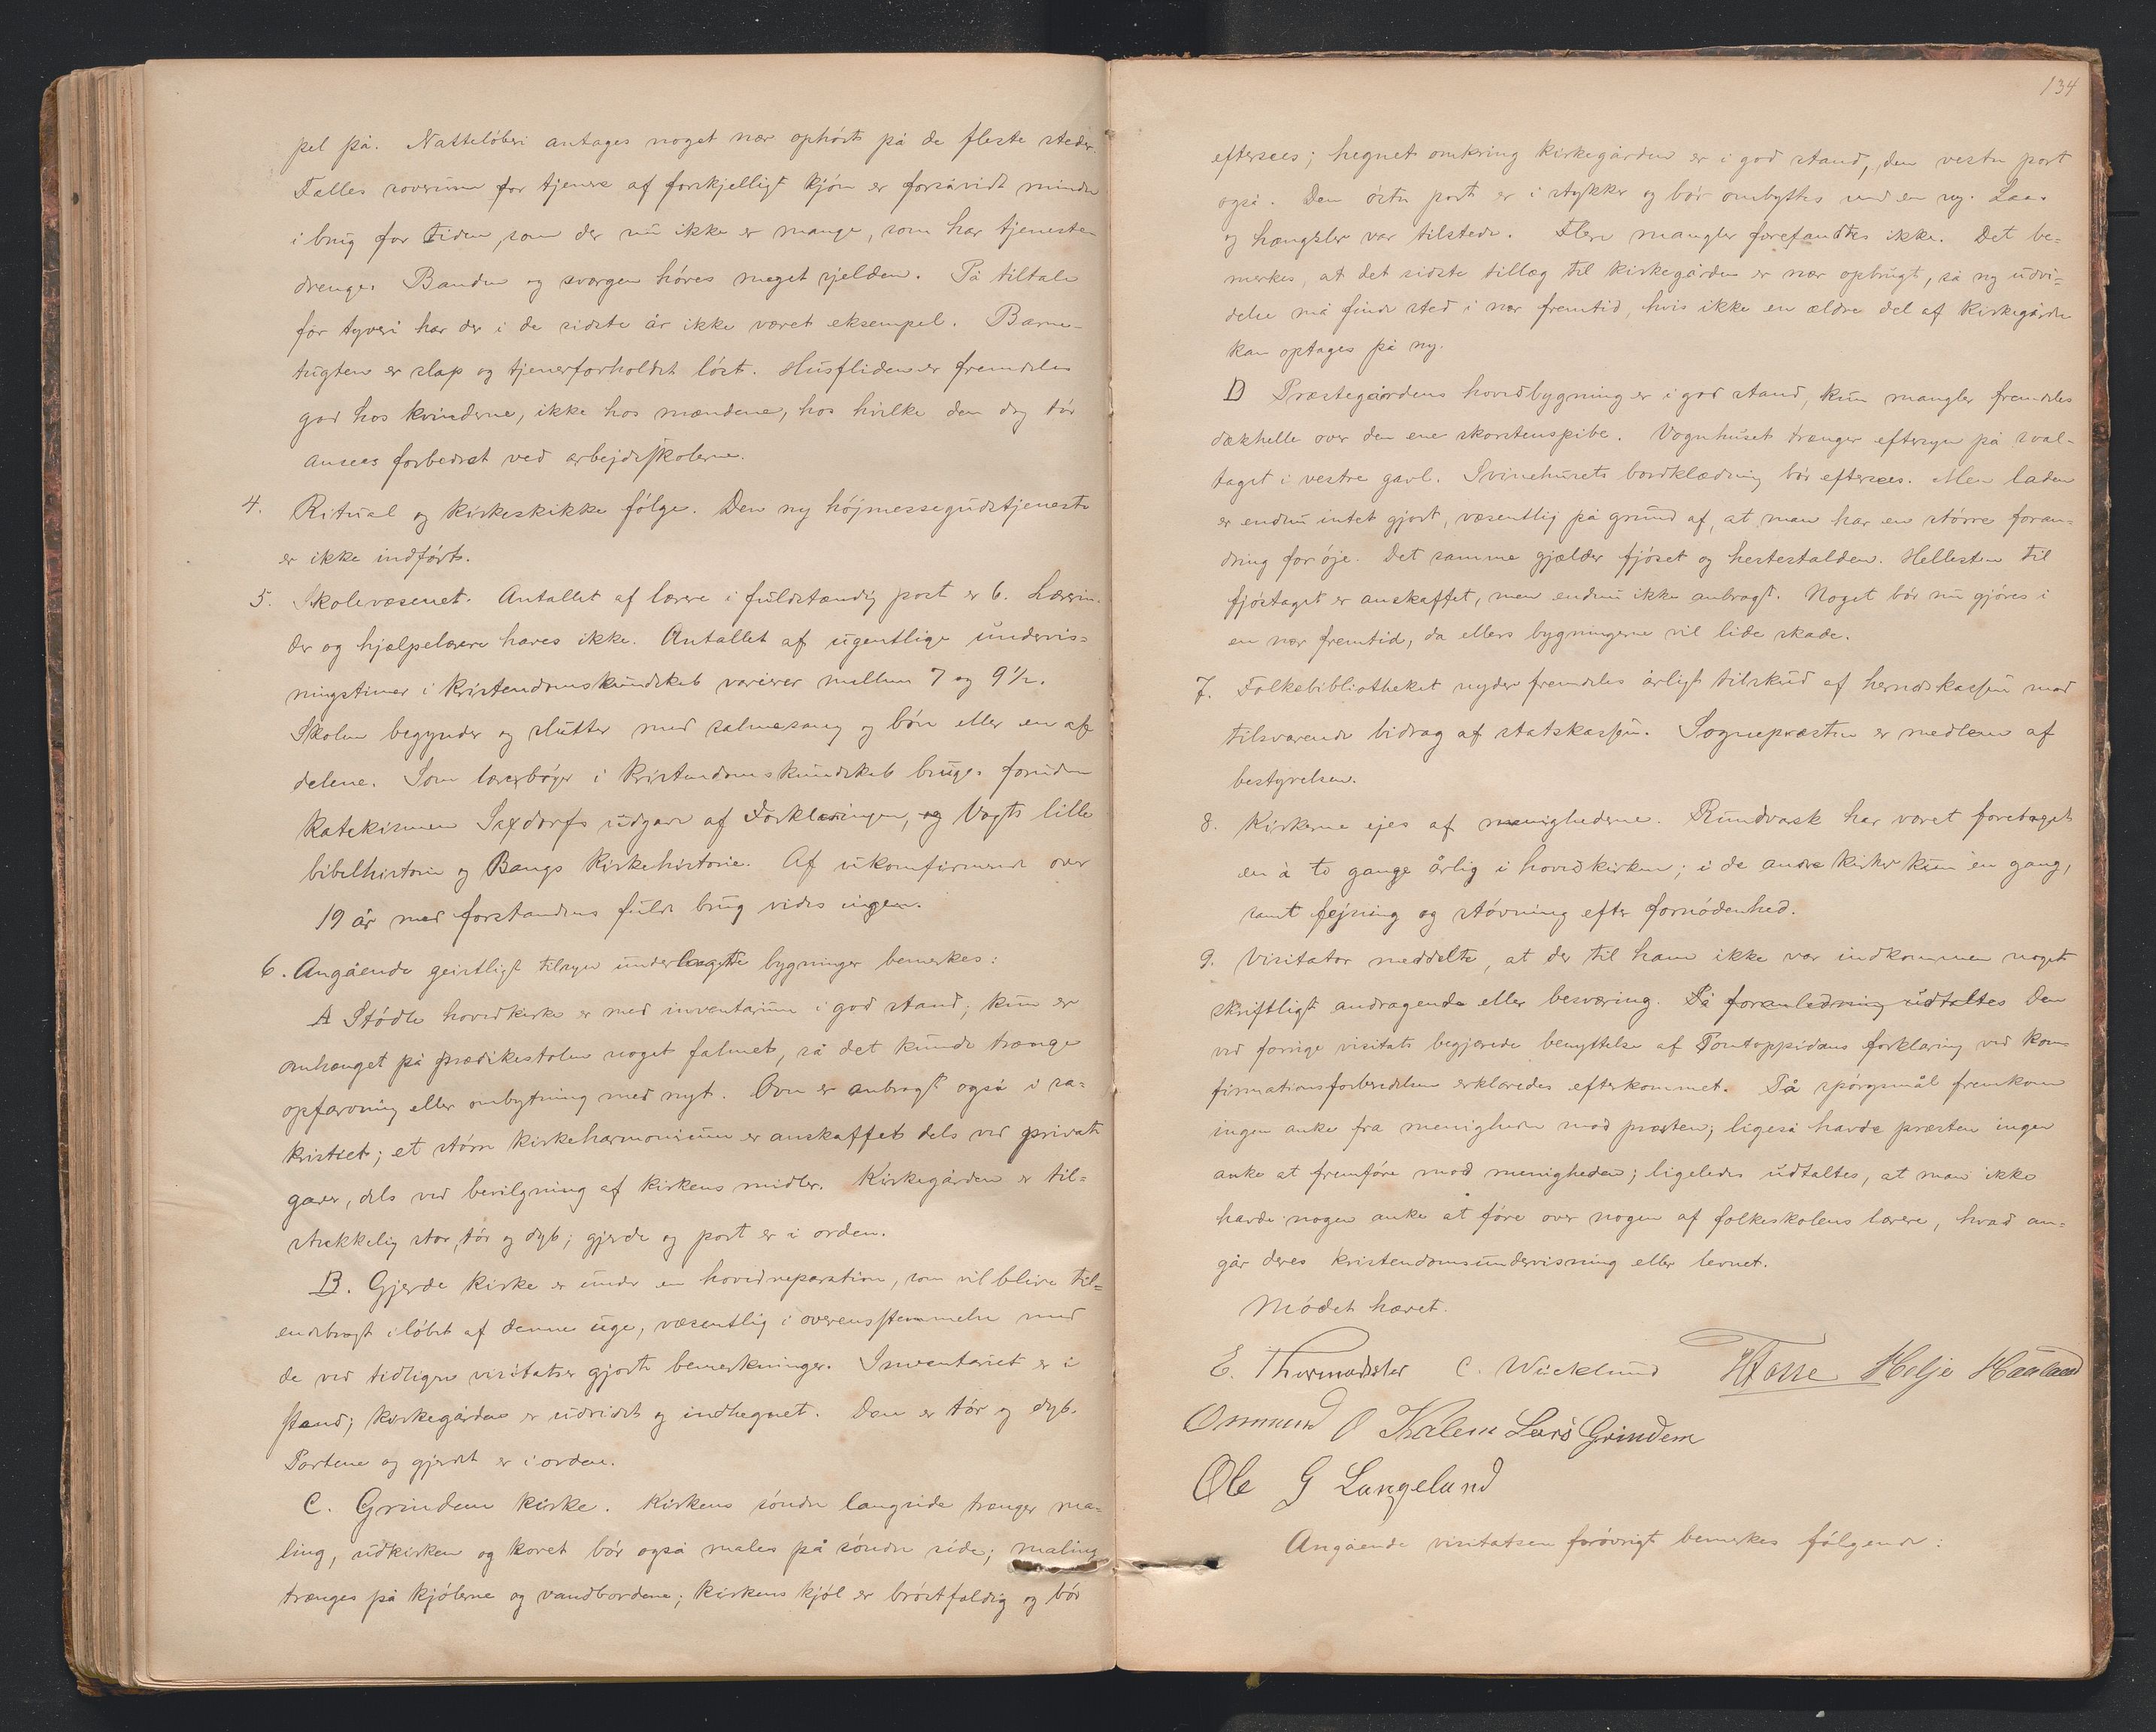 pel på. Natteløberi antages noget nær ophørt på de fleste steder.
Fælles soverum for tjenere af forskjelligt kjøn er forsåvidt mindre
i brug for tiden, som der nu ikke er mange, som har tjeneste-
drenge. Banden og sværgen høres meget sjelden. På tiltale
for tyveri har der i de sidste år ikke været eksempel. Barne-
tugten er slap og tjenerforholdet løst. Husfliden er fremdeles
god hos kvinderne, ikke hos mændene, hos hvilke den dog tør
ansees forbedret ved arbejdsskolerne.
4. Ritual og kirkeskikke følges. Den ny højmessegudstjeneste
er ikke indført.
5. Skolevæsenet. Antallet af lærere i fuldstændig post er 6. Lærerin-
der og hjælpelærere haves ikke. Antallet af ugentlige undervis=
ningstimer i kristendomskundskab varierer mellem 7 og 9½.
Skolen begynder og slutter med salmesang og bøn eller en af
delene. Som lærebøger i kristendomskundskab bruges foruden
katekismen Saxdorfs udgave af Forklaringen, og Vogts lille
bibelhistorie og Bangs kirkehistorie. Af ukonfirmerede over
19 år med forstandens fulde brug vides ingen.
6. Angående geistligt tilsyn underlagte bygninger bemerkes:
A Stødle hovedkirke er med inventarium i god stand; kun er
omhænget på prædikestolen noget falmet, så det kunde trænge
opfarvning eller ombytning med nyt. Ovn er anbragt også i sa-
kristiet; et større kirkeharmonium er anskaffet dels ved private
gaver, dels ved bevilgning af kirkens midler. Kirkegården er til=
strækkelig stor, tør og dyb; gjerde og port er i orden.
B. Gjerde kirke er under en hovedreparation, som vil blive til=
endebragt i løbet af denne uge, væsentlig i overensstemmelse med
de ved tidligere visitatser gjorte bemerkninger. Inventariet er i
stand; kirkegården er udvidet og indhegnet. Den er tør og dyb.
Portene og gjerdet er i orden.
C. Grindem kirke. Kirkens søndre langside trænger ma=
ling, udkirken og koret bør også males på søndre side; maling
trænges på kjølerne og vandbordene; kirkens kjøl er brøstfældig og bør
134
eftersees; hegnet omkring kirkegården er i god stand, den vestre port
også. Den østre port er i stykker og bør ombyttes med en ny. Laas
og hængsler var tilstede. Flere mangler forefandtes ikke. Det be=
merkes, at det sidste tillæg til kirkegården er nær opbrugt, så ny udvi=
delse må finde sted i nær fremtid, hvis ikke en ældre del af kirkegården
kan optages på ny.
D Præstegårdens hovedbygning er i god stand, kun mangler fremdeles
dækhelle over den ene skorstenspibe. Vognhuset trænger eftersyn på sval-
taget i vestre gavl. Svinehusets bordklædning bør eftersees. Men laden
er endnu intet gjort, væsentlig på grund af, at man har en større foran=
dring for øje. Det samme gjælder fjøset og hestestalden. Hellesten til
fjøstaget er anskaffet, men endnu ikke anbragt. Noget bør nu gjøres i
en nær fremtid, da ellers bygningerne vil lide skade.
7. Folkebibliotheket nyder fremdeles årligt tilskud af herredskassen mod
tilsvarende bidrag af statskassen. Sognepræsten er medlem af
bestyrelsen.
8. Kirkerne ejes af menighederne. Rundvask har været foretaget
en à to gange årlig i hovedkirken; i de andre kirker kun én gang,
samt fejning og støvning efter fornødenhed.
9. Visitator meddelte, at der til ham ikke var indkommen noget
skriftligt andragende eller besværing. På foranledning udtaltes Den
ved forrige visitats begjærede benyttelse af Pontoppidans forklaring ved kon=
firmationsforberedelsen erklæredes efterkommet. På spørgsmål fremkom
ingen anke fra menigheden mod præsten; ligeså havde præsten ingen
anke at fremføre mod menigheden; ligeledes udtaltes, at man ikke
havde nogen anke at føre over nogen af folkeskolens lærere, hvad an=
går deres kristendomsundervisning eller levnet.
Mødet hævet.
E. Thormodsæter C. Wücklund HFosse Helje Haaland
Osmund O Kalem Lars Grindem
Ole G Langeland
Angående visitatsen forøvrigt bemerkes følgende: